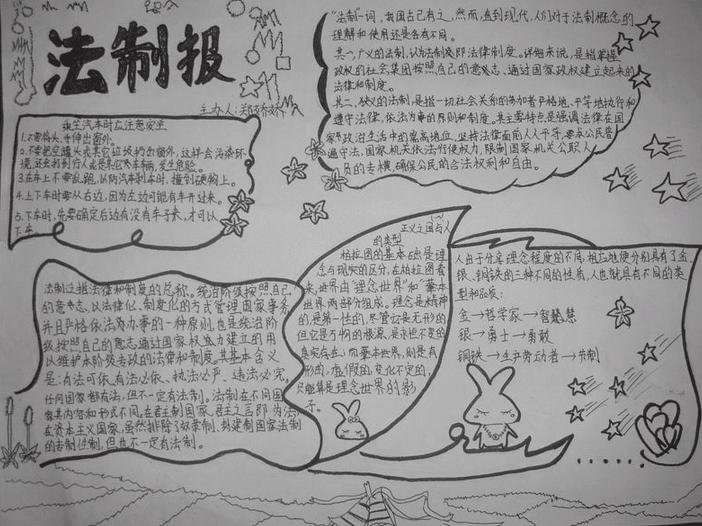 法制报
主办人:郑娇娇
乘坐汽车时应注意安全
1.不要将头、手伸出窗外。
2.不要把空罐头或其它垃圾扔出窗外,这样会污染环
境,还会打到行人或是其它来车辆,发生危险。
3.在车上不要乱跑,以防汽车刹车时,撞到硬物上。
4.上下车时要从右边,因为左边可能有车开过来。
5.下车时,先要确定后边有没有车子来,才可以
下车。
“法制”一词,我国古已有之,然而,直到现代,人们对于法制概念的
理解和使用还是各有不同。
其一,广义的法制,认为法制即法律制度。详细来说,是指掌握
政权的社会集团按照自己的意志,通过国家政权建立起来的
法律和制度。
其二,狭义的法制,是指一切社会关系的参加者严格地、平等地执行和
遵守法律,依法办事的原则和制度。其主要特点是强调法律在国
家政治生活中的崇高地位,坚持法律面前人人平等,要求公民普
遍守法,国家机关依法行使权力,限制国家机关公职人
员的专横,确保公民的合法权利和自由。
法制注指法律和制度的总称。统治阶级按照自己
的意志,以法律化、制度化的方式管理国家事务,
并且严格依法办事的一种原则,也是统治阶
级按照自己的意志通过国家权力建立的用
以维护本阶级专政的法律和制度,其基本含义
是:有法可依、有法必依、执法必严、违法必究。
任何国家都有法,但不一定有法制。法制在不同国
家其内容和形式不同。在君主制国家,君主之言即为法,
在资本主义国家,虽然排除了奴隶制、封建制国家法制
的专制性制,但也不一定有法制。
正义之国与人
的类型
柏拉图的基本向是理
念与现实的区分,在柏拉图看
来,世界由“理念世界”和“
世界”两部分组成。理念是精神
的,是第一性的,尽管它是无形的
但它是万物的根源,是永恒不变的
真实存在;而基本世界,则是有
形的,虚假的,变化不定的,
只能算是理念世界的影
子。
人由于分享理念程度的不同,相应地便分别具有了金、
银、铜铁的三种不同的性质,人也就具有不同的类
型和品质:
金→哲学家→智慧
银→勇士→勇敢
铜铁→生产劳动者→节制